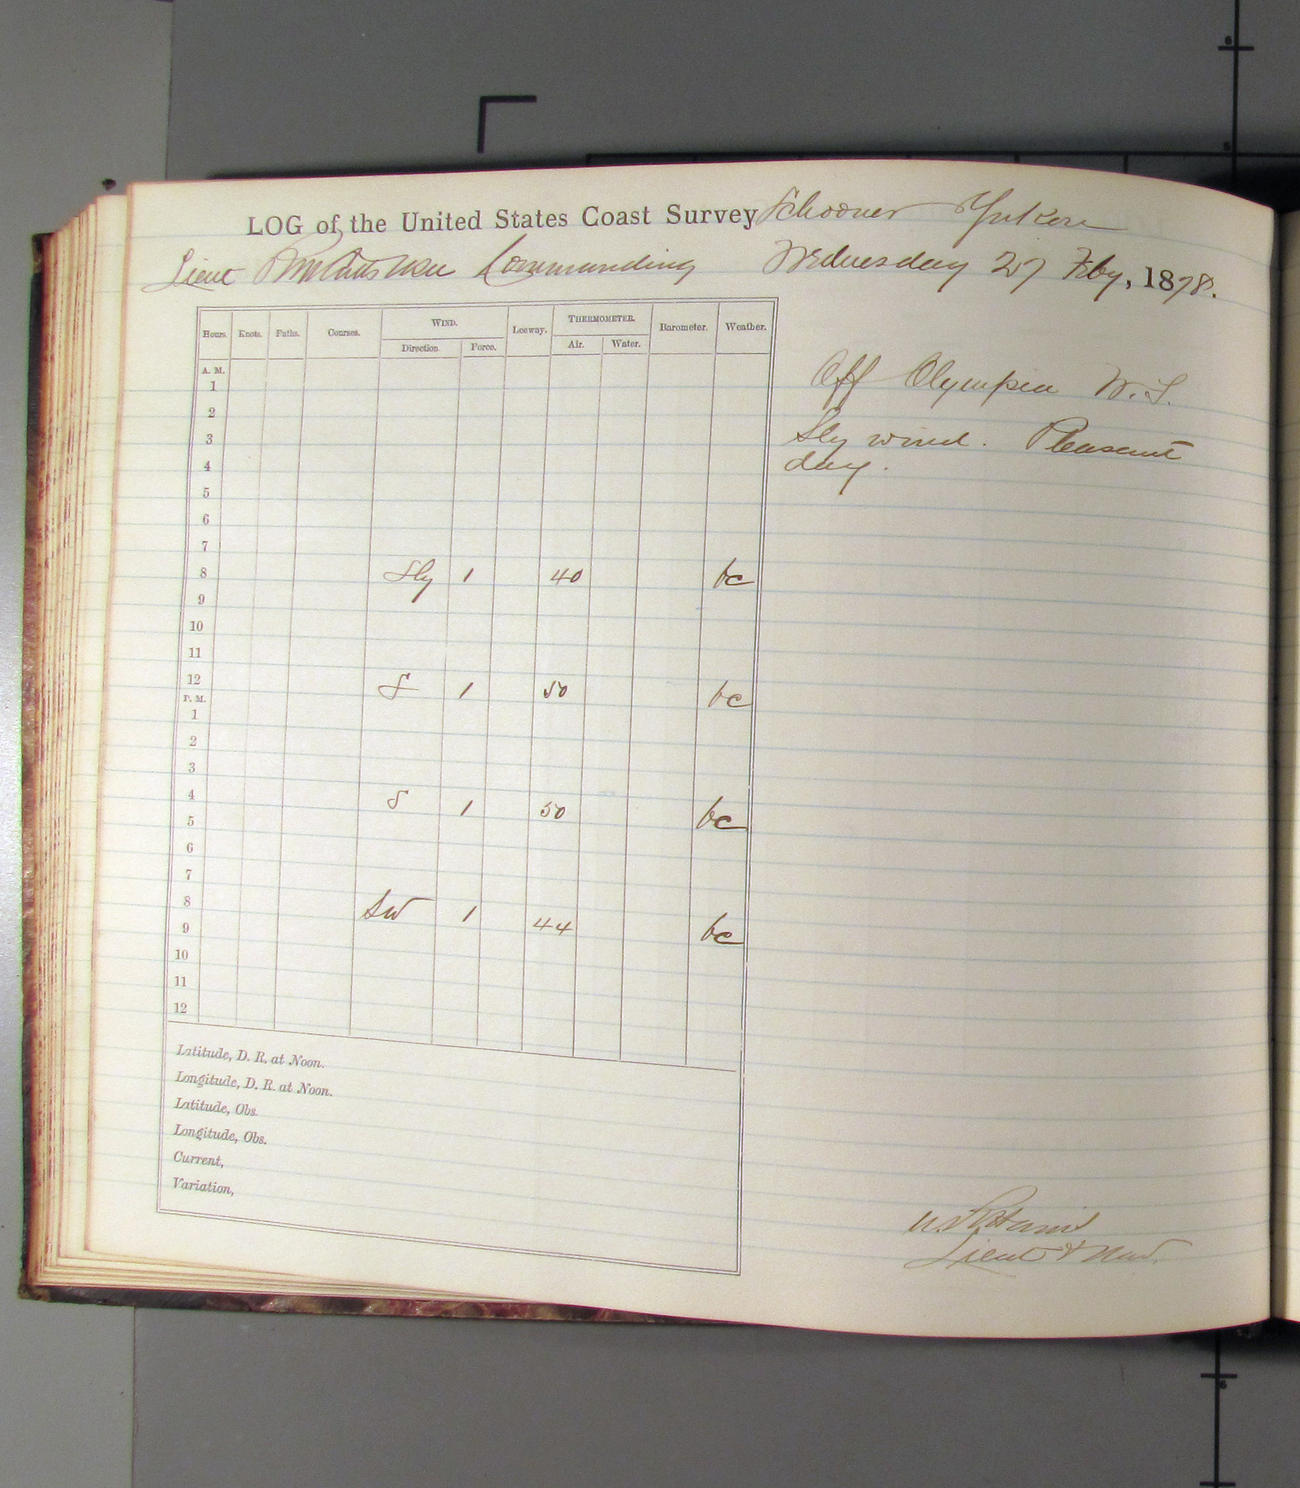 LOG of the United States Coast Survey Schooner Yukon
Lieut Commanding Wednesday 27 Feby, 1878.
Hours. Knots. Faths. Courses. WIND. Leeway. THERMOMETER. Barometer. Weather.
Direction. Force. Air. Water.
A. M.
1
Off Olympia W. T.
2
3
Sly wind. Pleasant
4
day.
5
6
7
8 Sly 1 40 bc
9
10
11
12 S 1 50 bc
P. M.
1
2
3
4 S 1 50 bc
5
6
7
8 SW 1 44 bc
9
10
11
12
Latitude, D. R. at Noon.
Longitude, D. R. at Noon.
Latitude, Obs.
Longitude, Obs.
Current,
Variation,
Lieut & Nav.
6
5
6